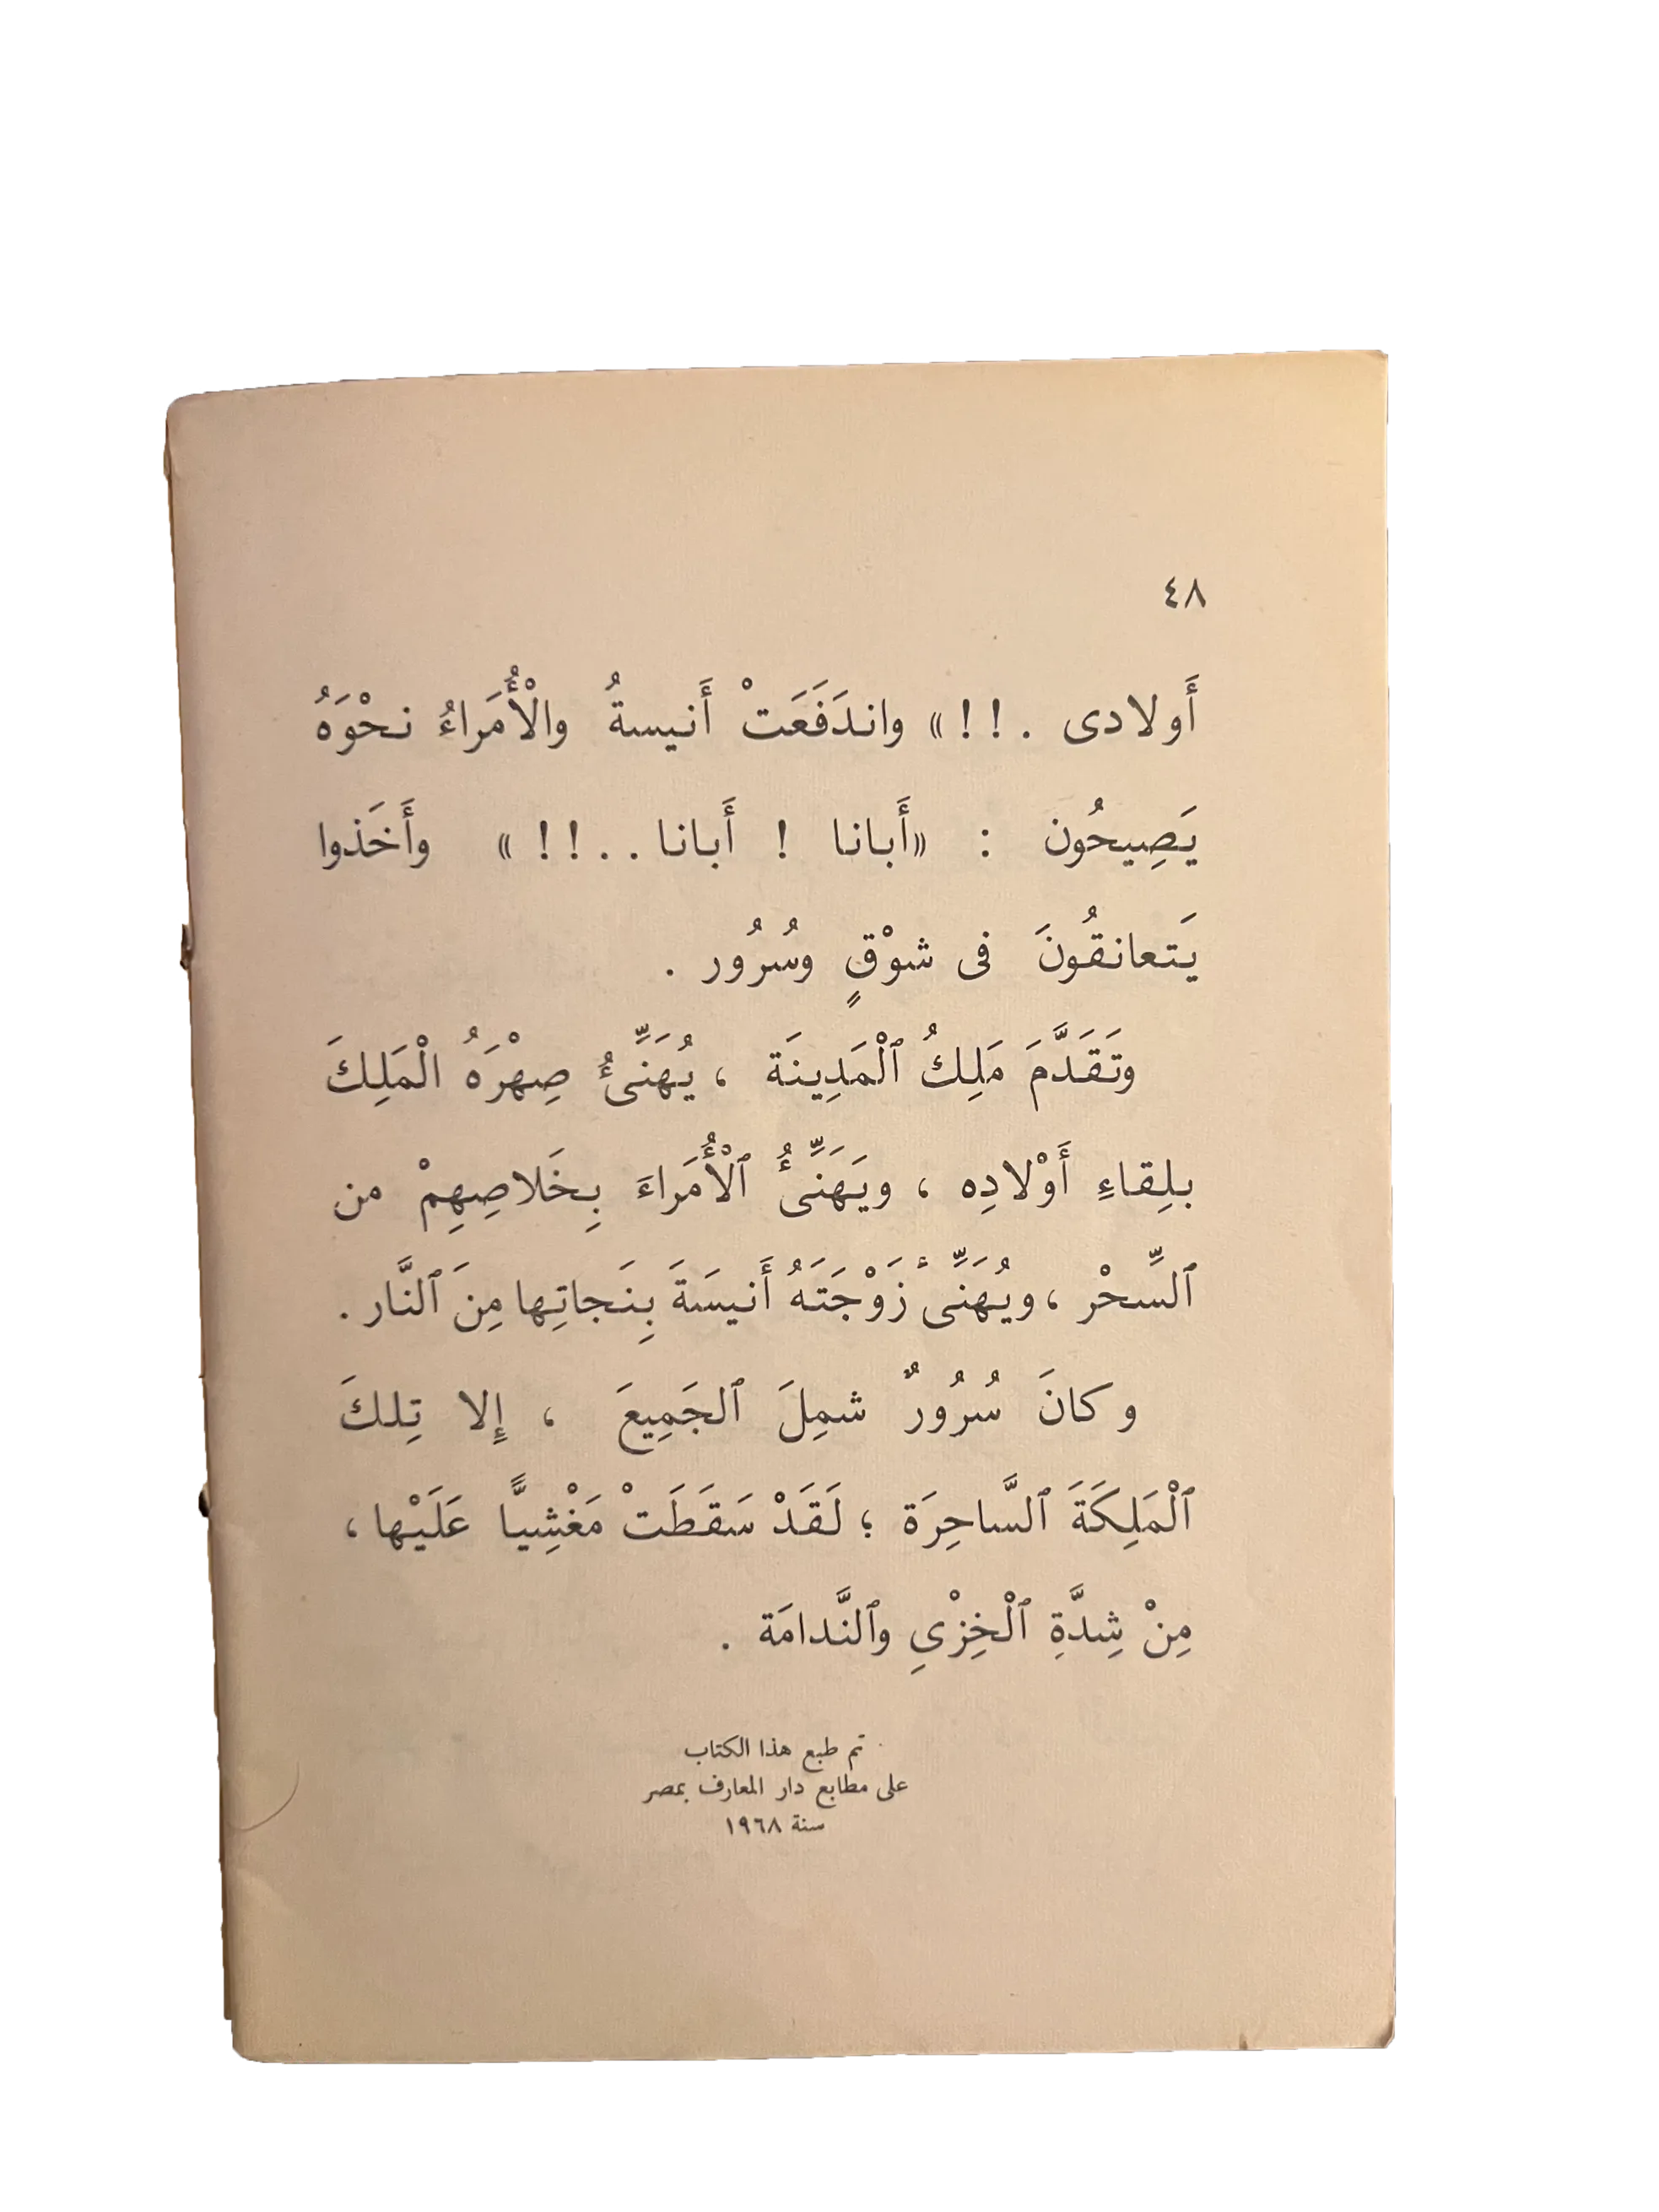 ٤٨
أَولادى .!!» واندَفَعَتْ أَنيسةُ والْأُمَراءُ نحْوَهُ
يَصِيحُون : «أَبانا ! أَبانا..!!» وأَخَذوا
يَتعانقُونَ فى شوْقٍ وسُرُور .
وتَقَدَّمَ مَلِكُ ٱلْمَدِينَة ، يُهَنِّىُٔ صِهْرَهُ الْمَلِكَ
بلِقاءِ أَوْلادِه ، ويَهَنِّىُٔ ٱلْأُمَراءَ بِخَلاصِهِمْ من
ٱلسِّحْر ، ويُهَنِّىٔ زَوْجَتَهُ أَنيسَةَ بِنَجاتِها مِنَ ٱلنَّار .
وكانَ سُرُورٌ شمِلَ ٱلجَمِيعَ ، إِلا تِلكَ
ٱلْمَلِكَةَ ٱلسَّاحِرَة ؛ لَقَدْ سَقَطَتْ مَغْشِيًّا عَلَيْها ،
مِنْ شِدَّةِ ٱلْخِزْىِ وٱلنَّدامَة .
تم طبع هذا الكتاب
على مطابع دار المعارف بمصر
سنة ١٩٦٨